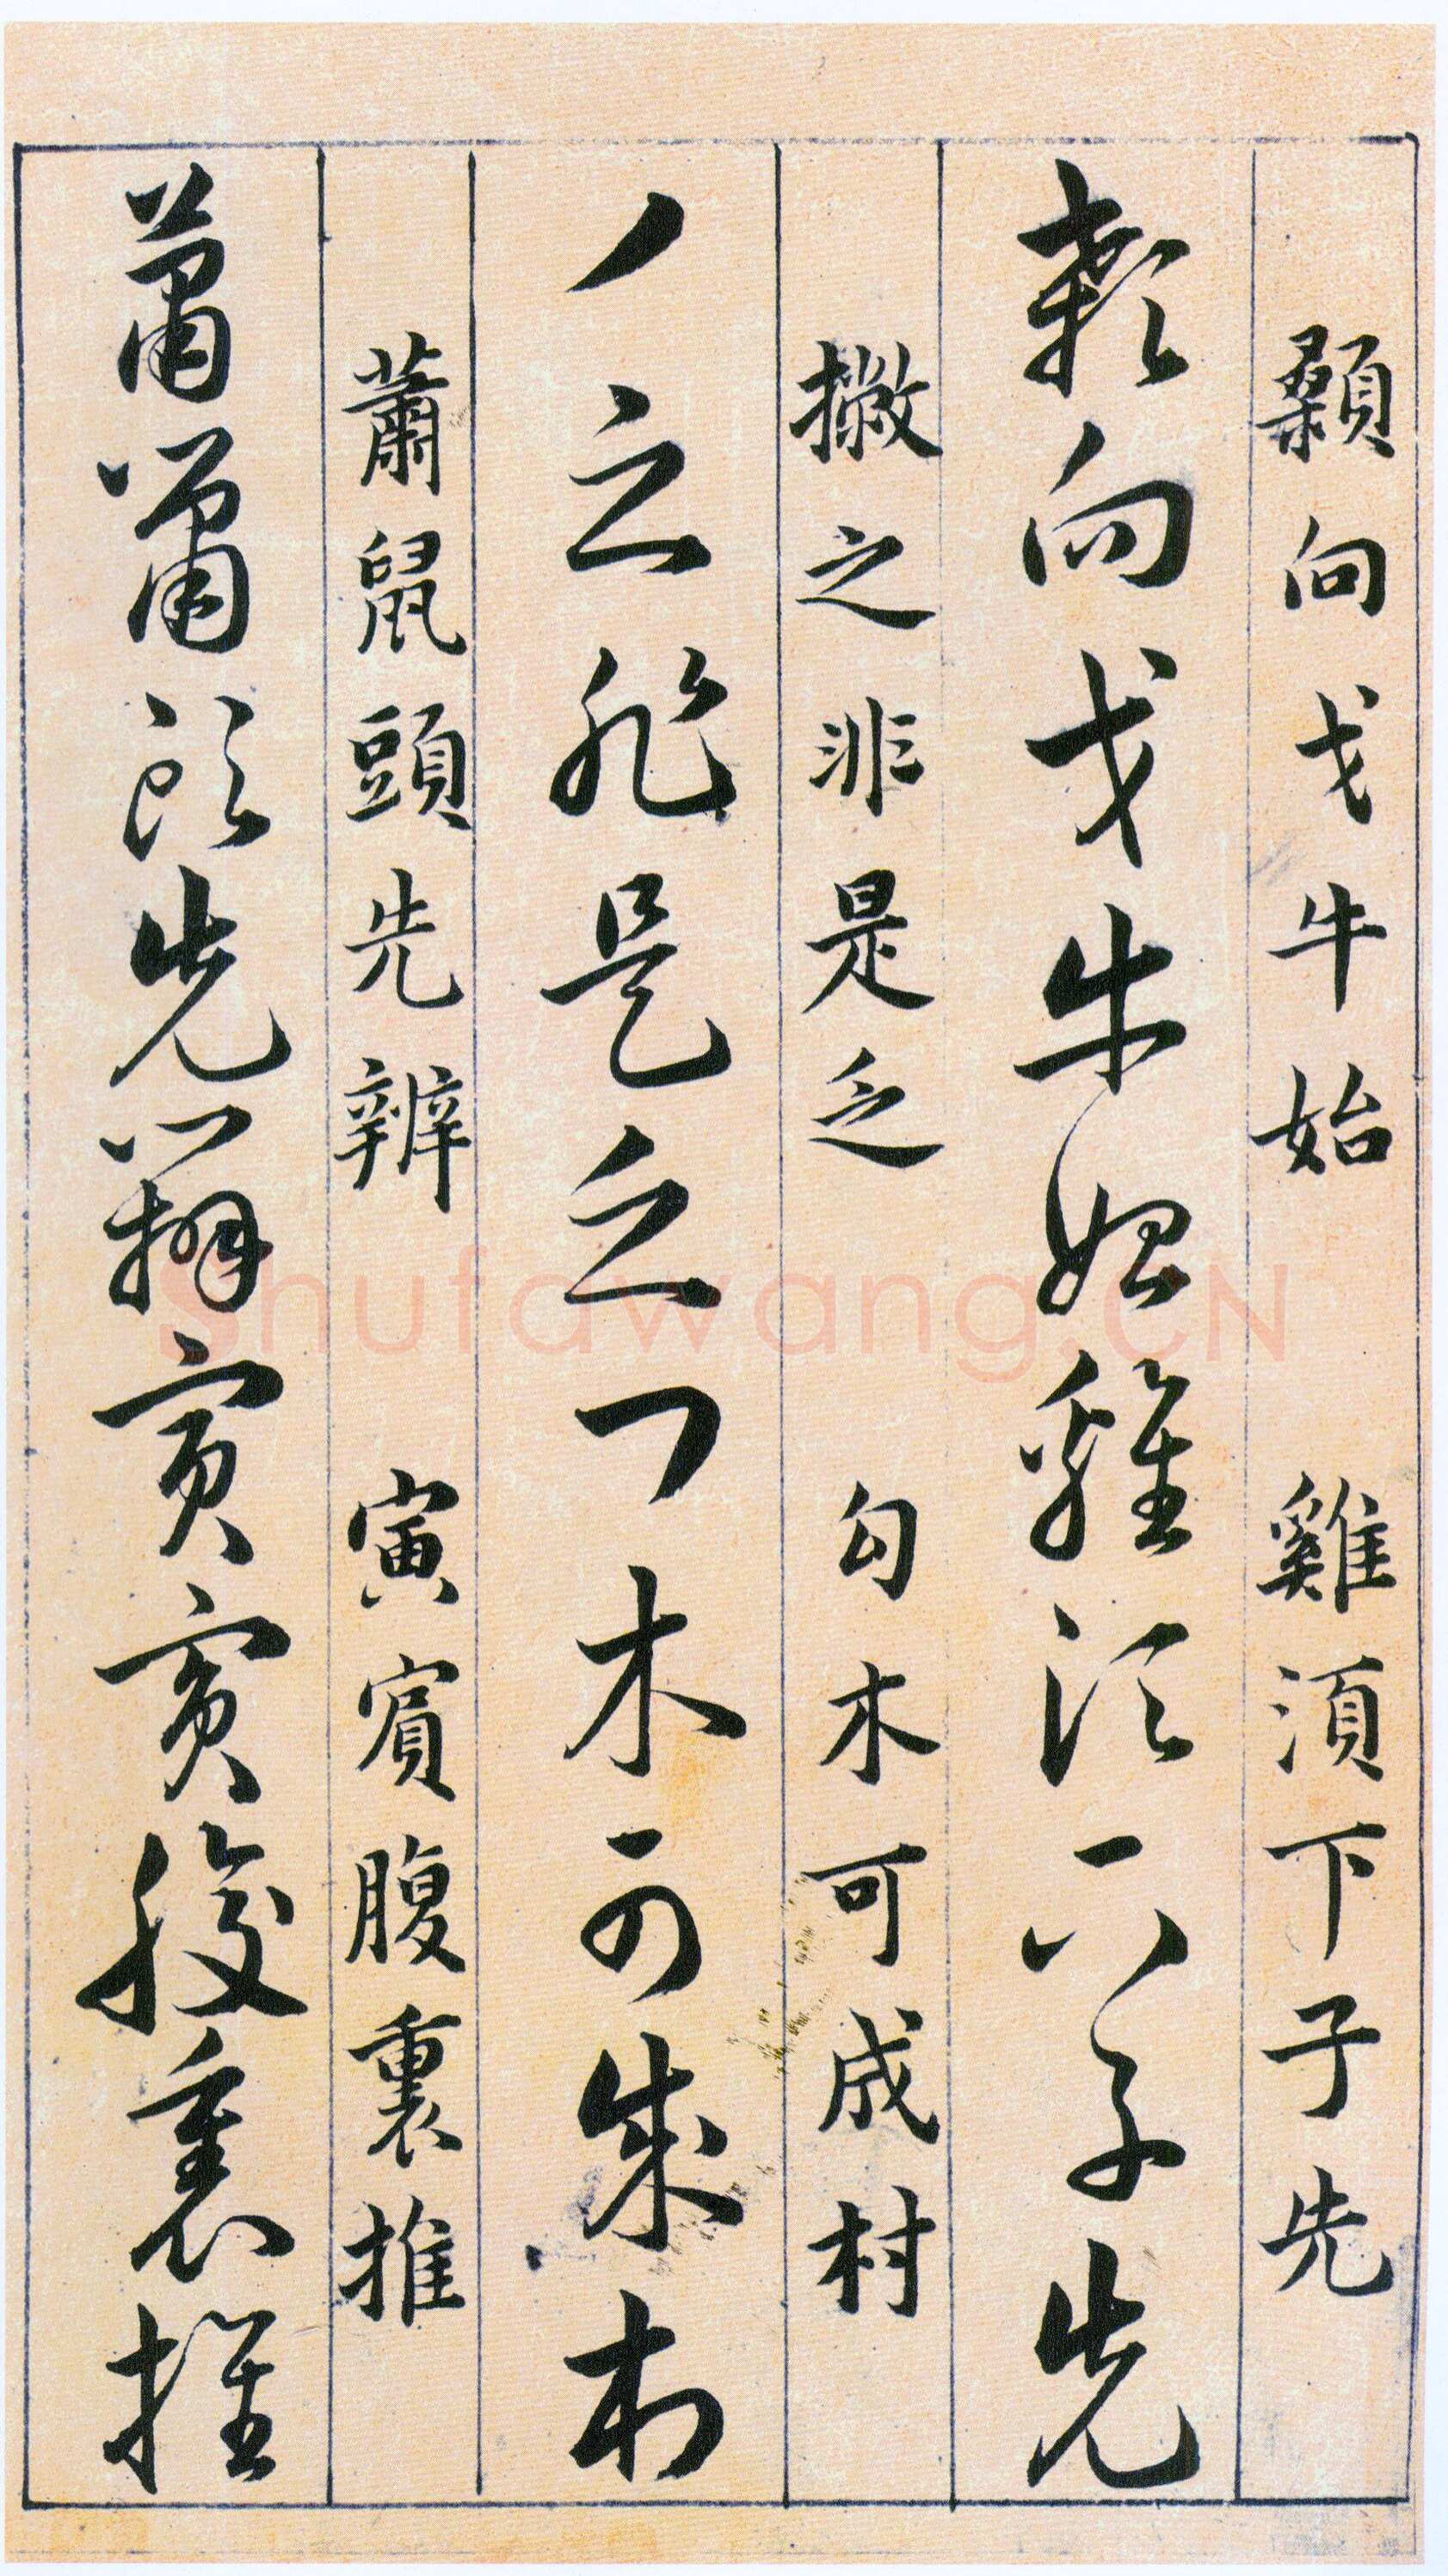 顙向戈牛始 雞須下子先
顙向戈牛始雞須下子先
撇之非是乏 勾木可成村
丿之非是乏㇆木可成村
蕭鼠頭先辨 寅賓腹裏推
蕭鼠頭先辨寅賓腹裏推
Shufawang.CN